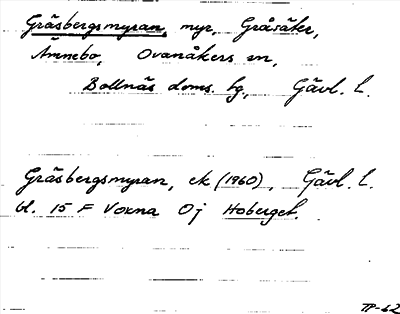 Gräsbergsmyran, myr, Gråsäter,
Annebo, Ovanåkers sn,
Bollnäs doms. hg, Gävl. l.
Gräsbergsmyran, ek (1960), Gävl. l.
bl. 15 F Voxna Oj Hoberget.
TP-62